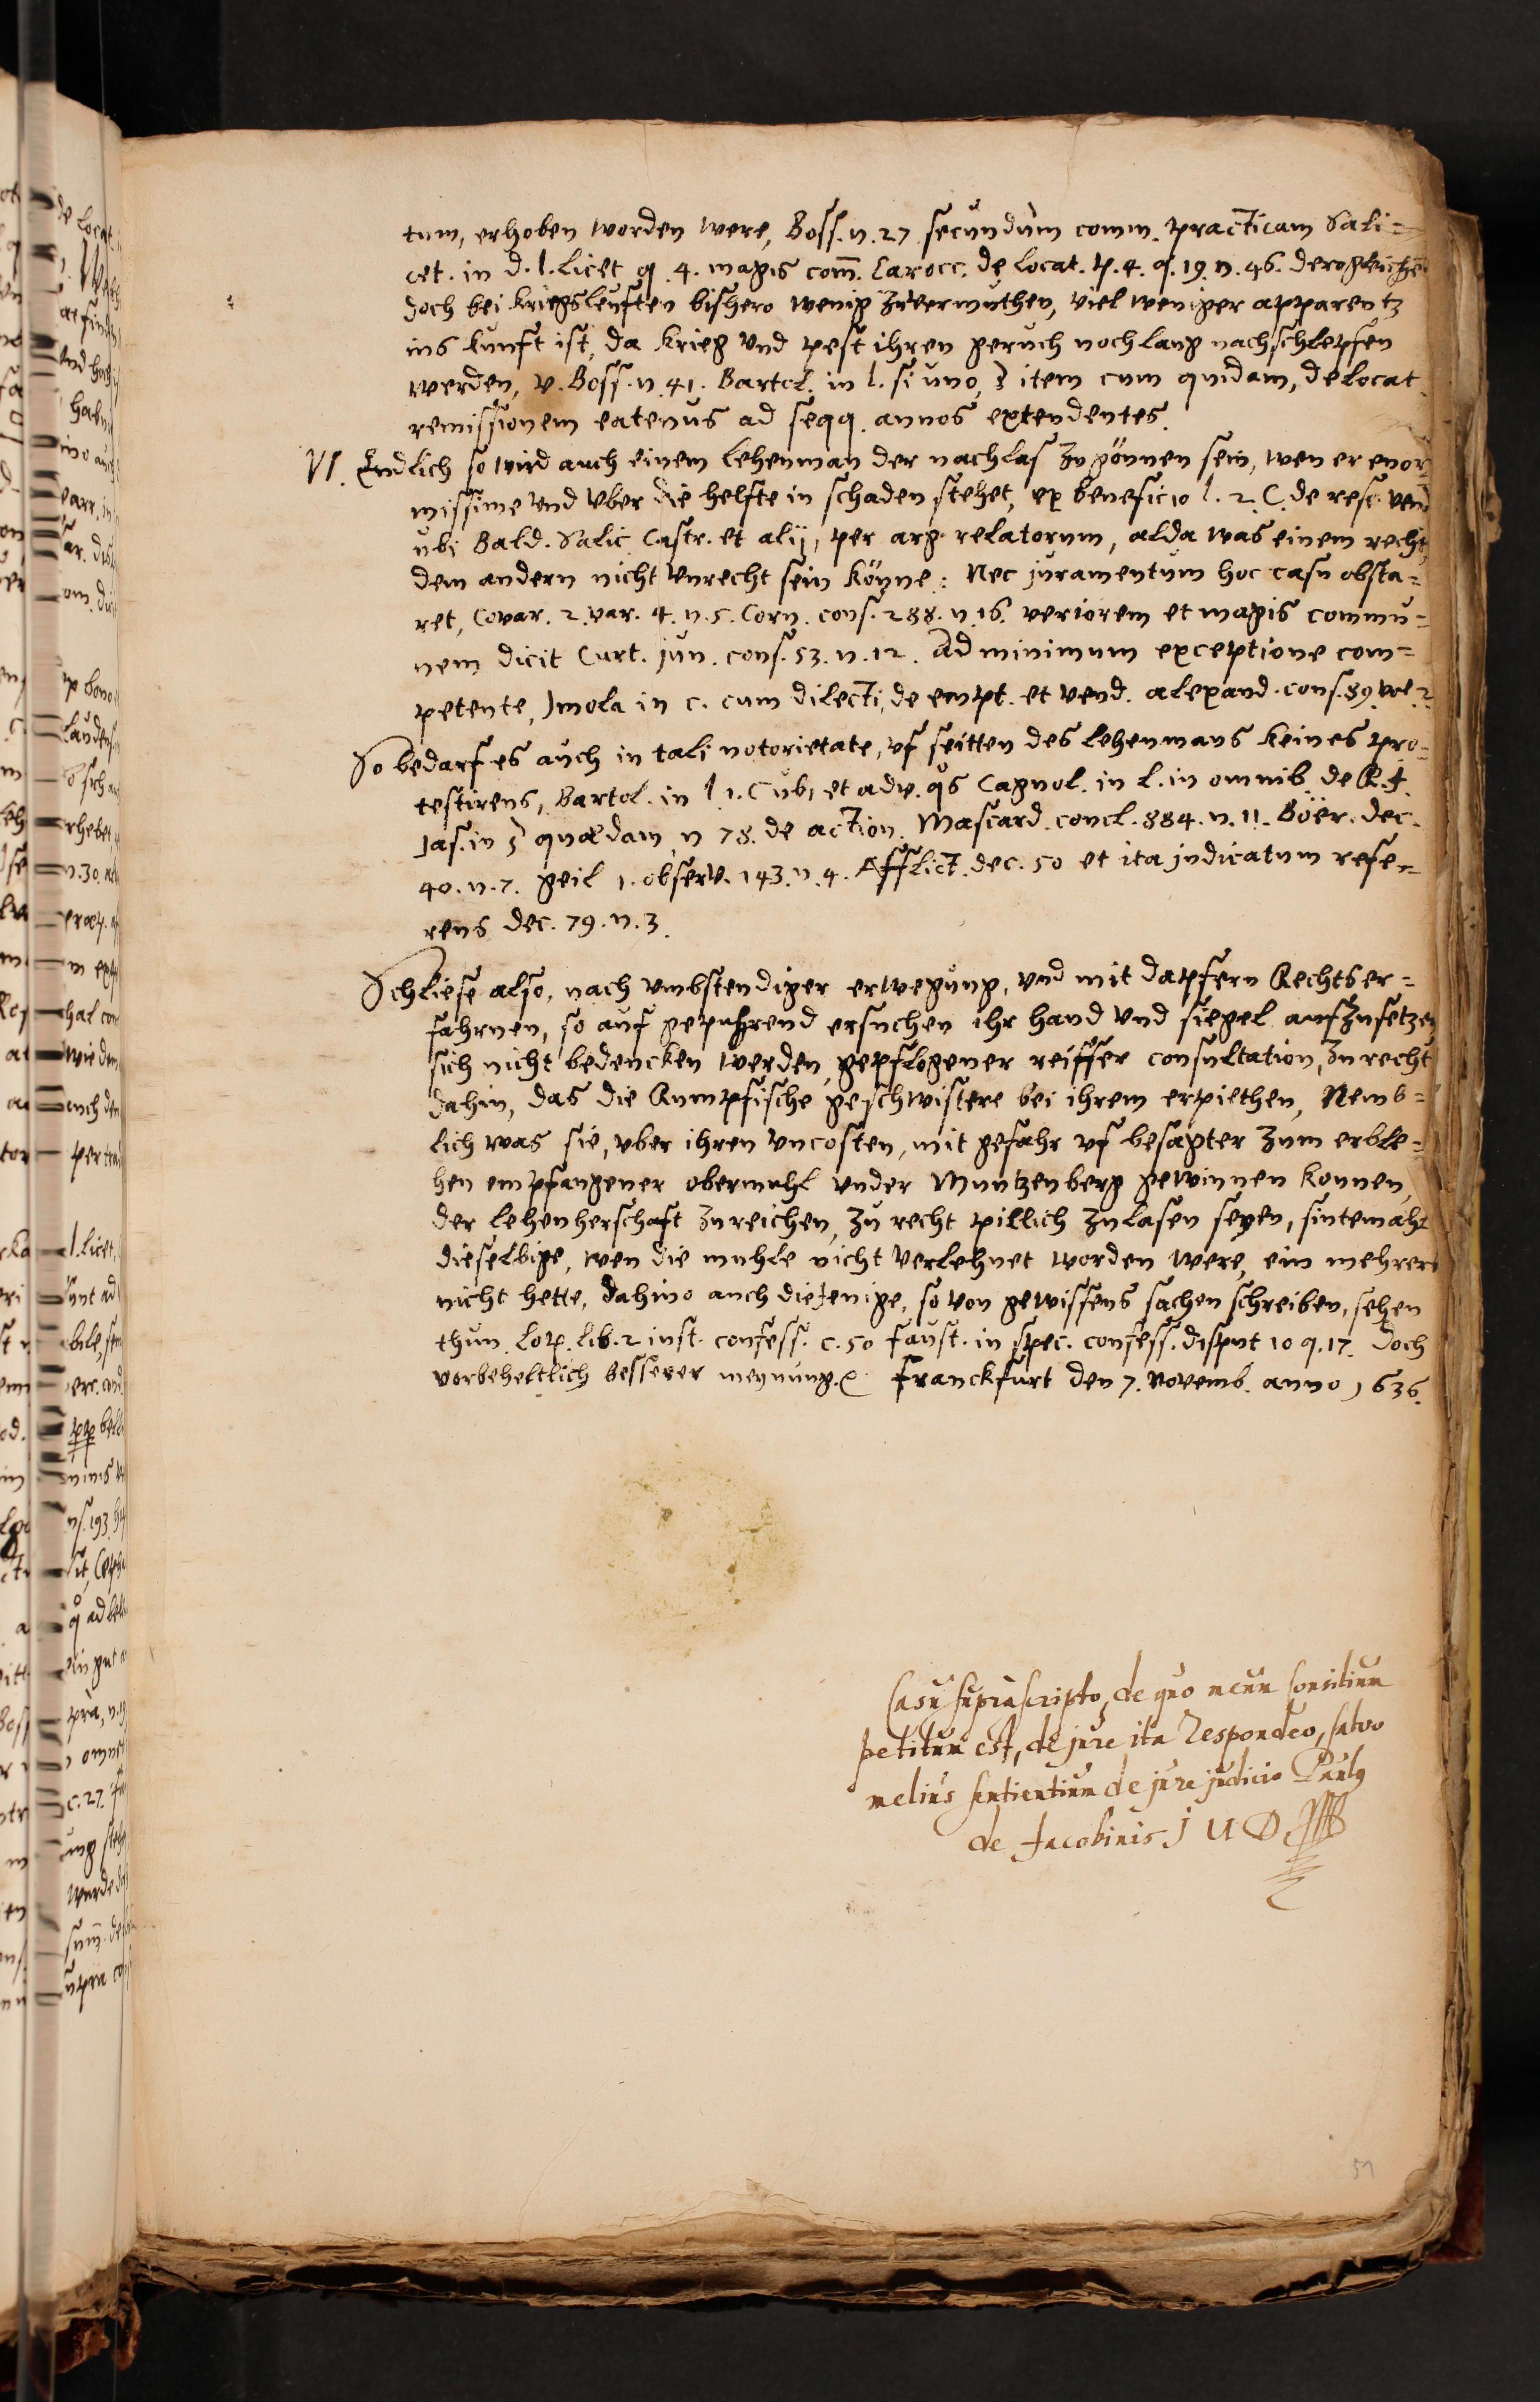 tum, erhoben worden were, Boss. n. 27 secundùm comm. practicam Sali=
cet. in d. l. licet q. 4. magis com̄. Carocc. de locat. p. 4. q. 19. n. 46. derogleichen
doch bei kriegsleuften bishero wenig zuvermuthen, viel weniger apparentz
ins kunft ist, da krieg vnd pest ihren geruch noch lang nachschlepfen
werden, v. Boss. n. 41. Bartol. in l. si uno, § item cum quidam, de locat.
remissionem eatenus ad seqq. annos extendentes.
VI. Endlich so wird auch einem lehenman der nachlas zu gönnen sein, wen er enor
missime vnd vber die helfte in schaden stehet, ex beneficio l. 2. C. de resc. vend
ubi Bald. Salic. Castr. et alij, per arg. relatorum, alda was einem recht,
dem andern nicht vnrecht sein könne: Nec juramentum hoc casu obsta=
ret, Covar. 2. var. 4. n. 5. Corn. cons. 288. n. 16. veriorem et magis commu=
nem dicit Curt. jun. cons. 53. n. 12. Ad minimum exceptione com=
petente, Imola in c. cum dilecti, de empt. et vend. alexand. cons. 89. vol. 2
So bedarf es auch in tali notorietate, vf seitten des lehenmans keines pro=
testirens, Bartol. in l. 1. C. ubi et adv. qs Cagnol. in l. in omnib. de R. J.
Jas. in § quædam, n 78. de action. Mascard. concl. 884. n. 11. Böer. dec.
40. n. 7. geil 1. observ. 143. n. 4. Afflict. dec. 50 et ita judicatum refe=
rens dec. 79. n. 3.
Schliese also, nach vmbstendiger erwegung, vnd mit dapfern Rechtser=
fahrnen, so auf gepuhrend ersuchen ihr hand vnd siegel aufzusetzen
sich nicht bedencken werden, gepflogener reiffer consultation, zu recht
dahin, das die Rumpfische geschwistere bei ihrem erpiethen, Nemb=
lich was sie, vber ihren vncosten, mit gefahr vf besagter zum erble=
hen empfangener obermuhl vnder Muntzenberg gewinnen konnen,
der lehenherschaft zu reichen, zu recht pillich zulasen seyen, sintemahl
dieselbige, wen die muhle nicht verlehnet worden were, ein mehrers
nicht hette, dahino auch diejenige, so von gewissens sachen schreiben, sehen
thun. Lop. lib. 2 inst. confess. c. 50 Faust. in spec. confess. disput 10 q. 17. Doch
vorbeheltlich besserer meynung. Franckfurt den 7. Novemb. anno 1636.
Casu supra scripto, de quo meum Consilium
petitum est, de jure ita Respondeo, salvo
melius sentientium de jure judicio Paulg
de Jacobinis J U D
51